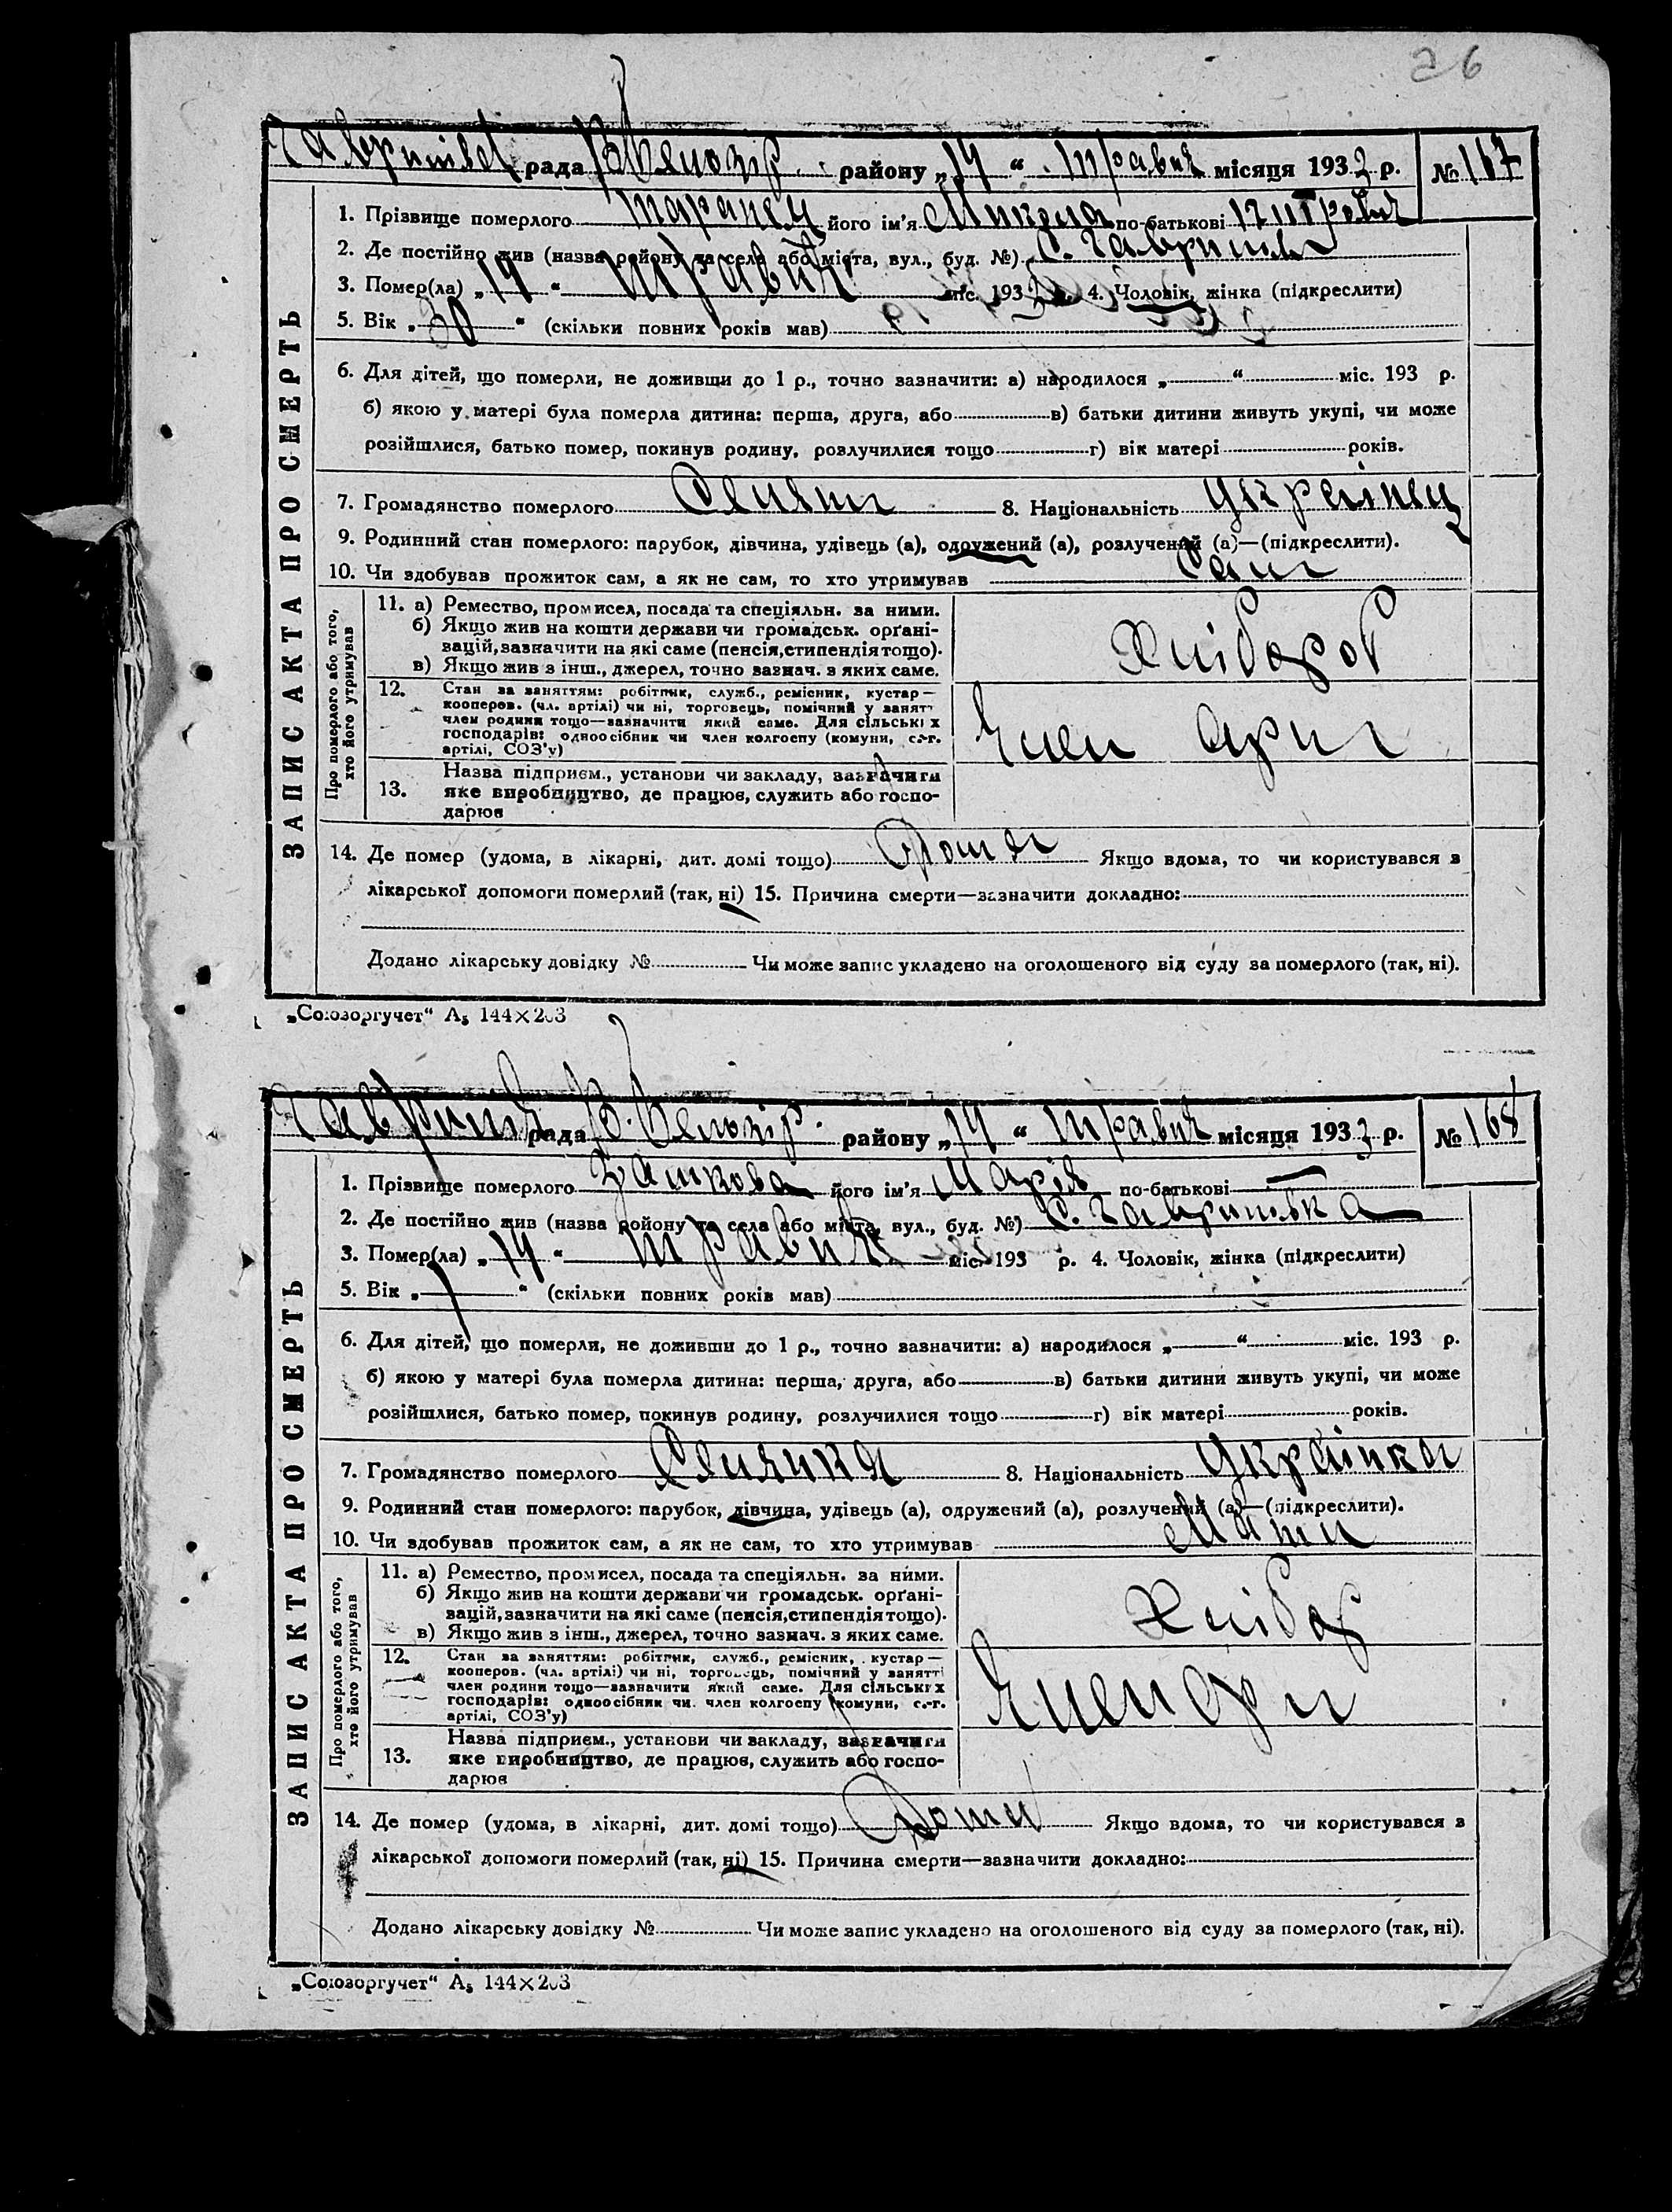 26
рада району „14“ травня місяця 1933 р. № 167
1. Прізвище померлого Таранец його ім'я Микола по-батькові
2. Де постійно жив (назва району та села або міста, вул., буд. №) с.
3. Помер(ла) „14“ травня міс. 1933 р. 4. Чоловік, жінка (підкреслити)
5. Вік „30“ (скільки повних років мав)
6. Для дітей, що померли, не доживши до 1 р., точно зазначити: а) народилося „ “ міс. 193 р.
б) якою у матері була померла дитина: перша, друга, або в) батьки дитини живуть укупі, чи може
розійшлися, батько помер, покинув родину, розлучилися тощо г) вік матері років.
7. Громадянство померлого Селянин 8. Національність Українец
9. Родинний стан померлого: парубок, дівчина, удівець (а), одружений (а), розлучений (а)—(підкреслити).
10. Чи здобував прожиток сам, а як не сам, то хто утримував Сам
11. а) Ремество, промисел, посада та спеціяльн. за ними.
б) Якщо жив на кошти держави чи громадськ. орґані-
зацій, зазначити на які саме (пенсія, стипендія тощо).
в) Якщо жив з інш., джерел, точно зазнач. з яких саме.
Хлібороб
12. Стан за заняттям: робітник, служб., ремісник, кустар—
кооперов. (чл. артілі) чи ні, торговець, помічний у занятті
член родини тощо—зазначити який саме. Для сільських
господарів: одноосібник чи член колгоспу (комуни, с.-г.
артілі, СОЗ'у)
Член
13. Назва підприєм., установи чи закладу, зазначити
яке виробництво, де працює, служить або госпо-
дарює
14. Де помер (удома, в лікарні, дит. домі тощо) Дома Якщо вдома, то чи користувався з
лікарської допомоги померлий (так, ні) 15. Причина смерти—зазначити докладно:
Додано лікарську довідку № Чи може запис укладено на оголошеного від суду за померлого (так, ні).
ЗАПИС АКТА ПРО СМЕРТЬ
Про померлого або того,
хто його утримував
„Союзоргучет“ А5 144×203
рада В. Білозір. району „14“ травня місяця 1933 р. № 168
1. Прізвище померлого його ім'я Марія по-батькові —
2. Де постійно жив (назва району та села або міста, вул., буд. №) с. Гавришівка
3. Помер(ла) „14“ травня міс. 193 р. 4. Чоловік, жінка (підкреслити)
5. Вік „1“ (скільки повних років мав)
6. Для дітей, що померли, не доживши до 1 р., точно зазначити: а) народилося „ “ міс. 193 р.
б) якою у матері була померла дитина: перша, друга, або в) батьки дитини живуть укупі, чи може
розійшлися, батько помер, покинув родину, розлучилися тощо г) вік матері років.
7. Громадянство померлого Селянка 8. Національність Українка
9. Родинний стан померлого: парубок, дівчина, удівець (а), одружений (а), розлучений (а)—(підкреслити).
10. Чи здобував прожиток сам, а як не сам, то хто утримував Мати
11. а) Ремество, промисел, посада та спеціяльн. за ними.
б) Якщо жив на кошти держави чи громадськ. орґані-
зацій, зазначити на які саме (пенсія, стипендія тощо).
в) Якщо жив з інш., джерел, точно зазнач. з яких саме.
Хлібор
12. Стан за заняттям: робітник, служб., ремісник, кустар—
кооперов. (чл. артілі) чи ні, торговець, помічний у занятті
член родини тощо—зазначити який саме. Для сільських
господарів: одноосібник чи член колгоспу (комуни, с.-г.
артілі, СОЗ'у)
Член
13. Назва підприєм., установи чи закладу, зазначити
яке виробництво, де працює, служить або госпо-
дарює
14. Де помер (удома, в лікарні, дит. домі тощо) Дома Якщо вдома, то чи користувався з
лікарської допомоги померлий (так, ні) 15. Причина смерти—зазначити докладно:
Додано лікарську довідку № Чи може запис укладено на оголошеного від суду за померлого (так, ні).
ЗАПИС АКТА ПРО СМЕРТЬ
Про померлого або того,
хто його утримував
„Союзоргучет“ А5 144×203